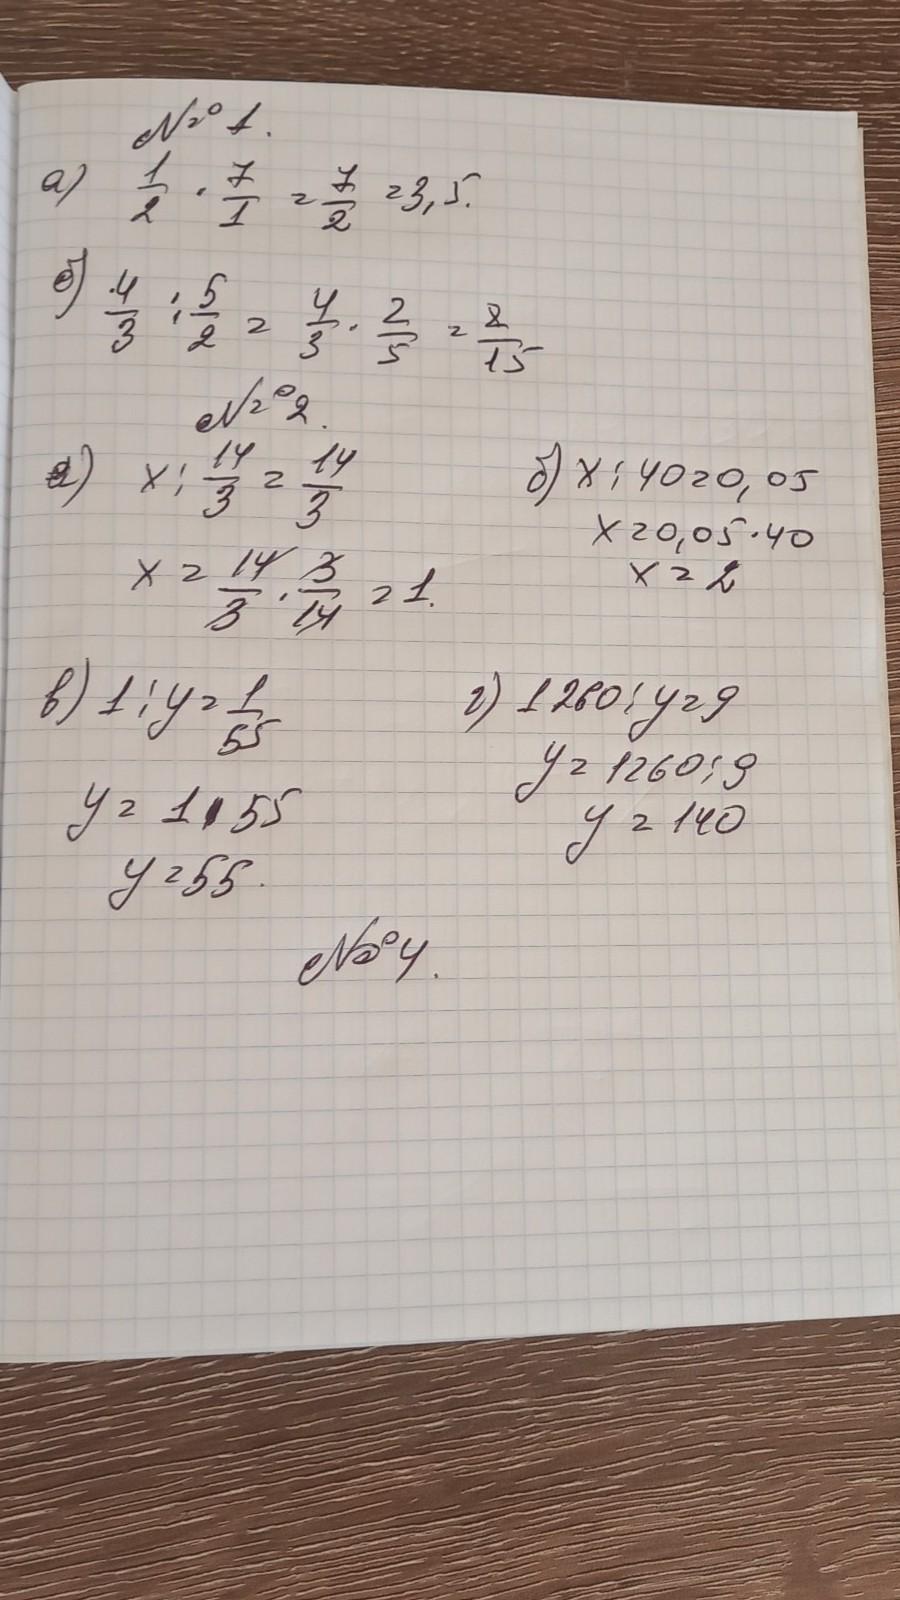 № 1.
а) 1/2 · 7/1 = 7/2 = 3,5.
б) 4/3 : 5/2 = 4/3 · 2/5 = 8/15
№ 2.
а) x : 14/3 = 14/3
x = 14/3 · 3/14 = 1.
б) x : 40 = 0,05
x = 0,05 · 40
x = 2
в) 1 : y = 1/55
y = 1 · 55
y = 55.
г) 1260 : y = 9
y = 1260 : 9
y = 140
№ 4.